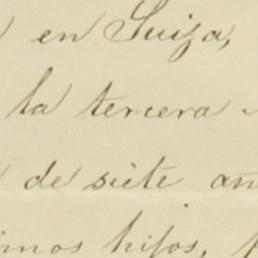 en Suiza,
la tercera
de siete
hijos,